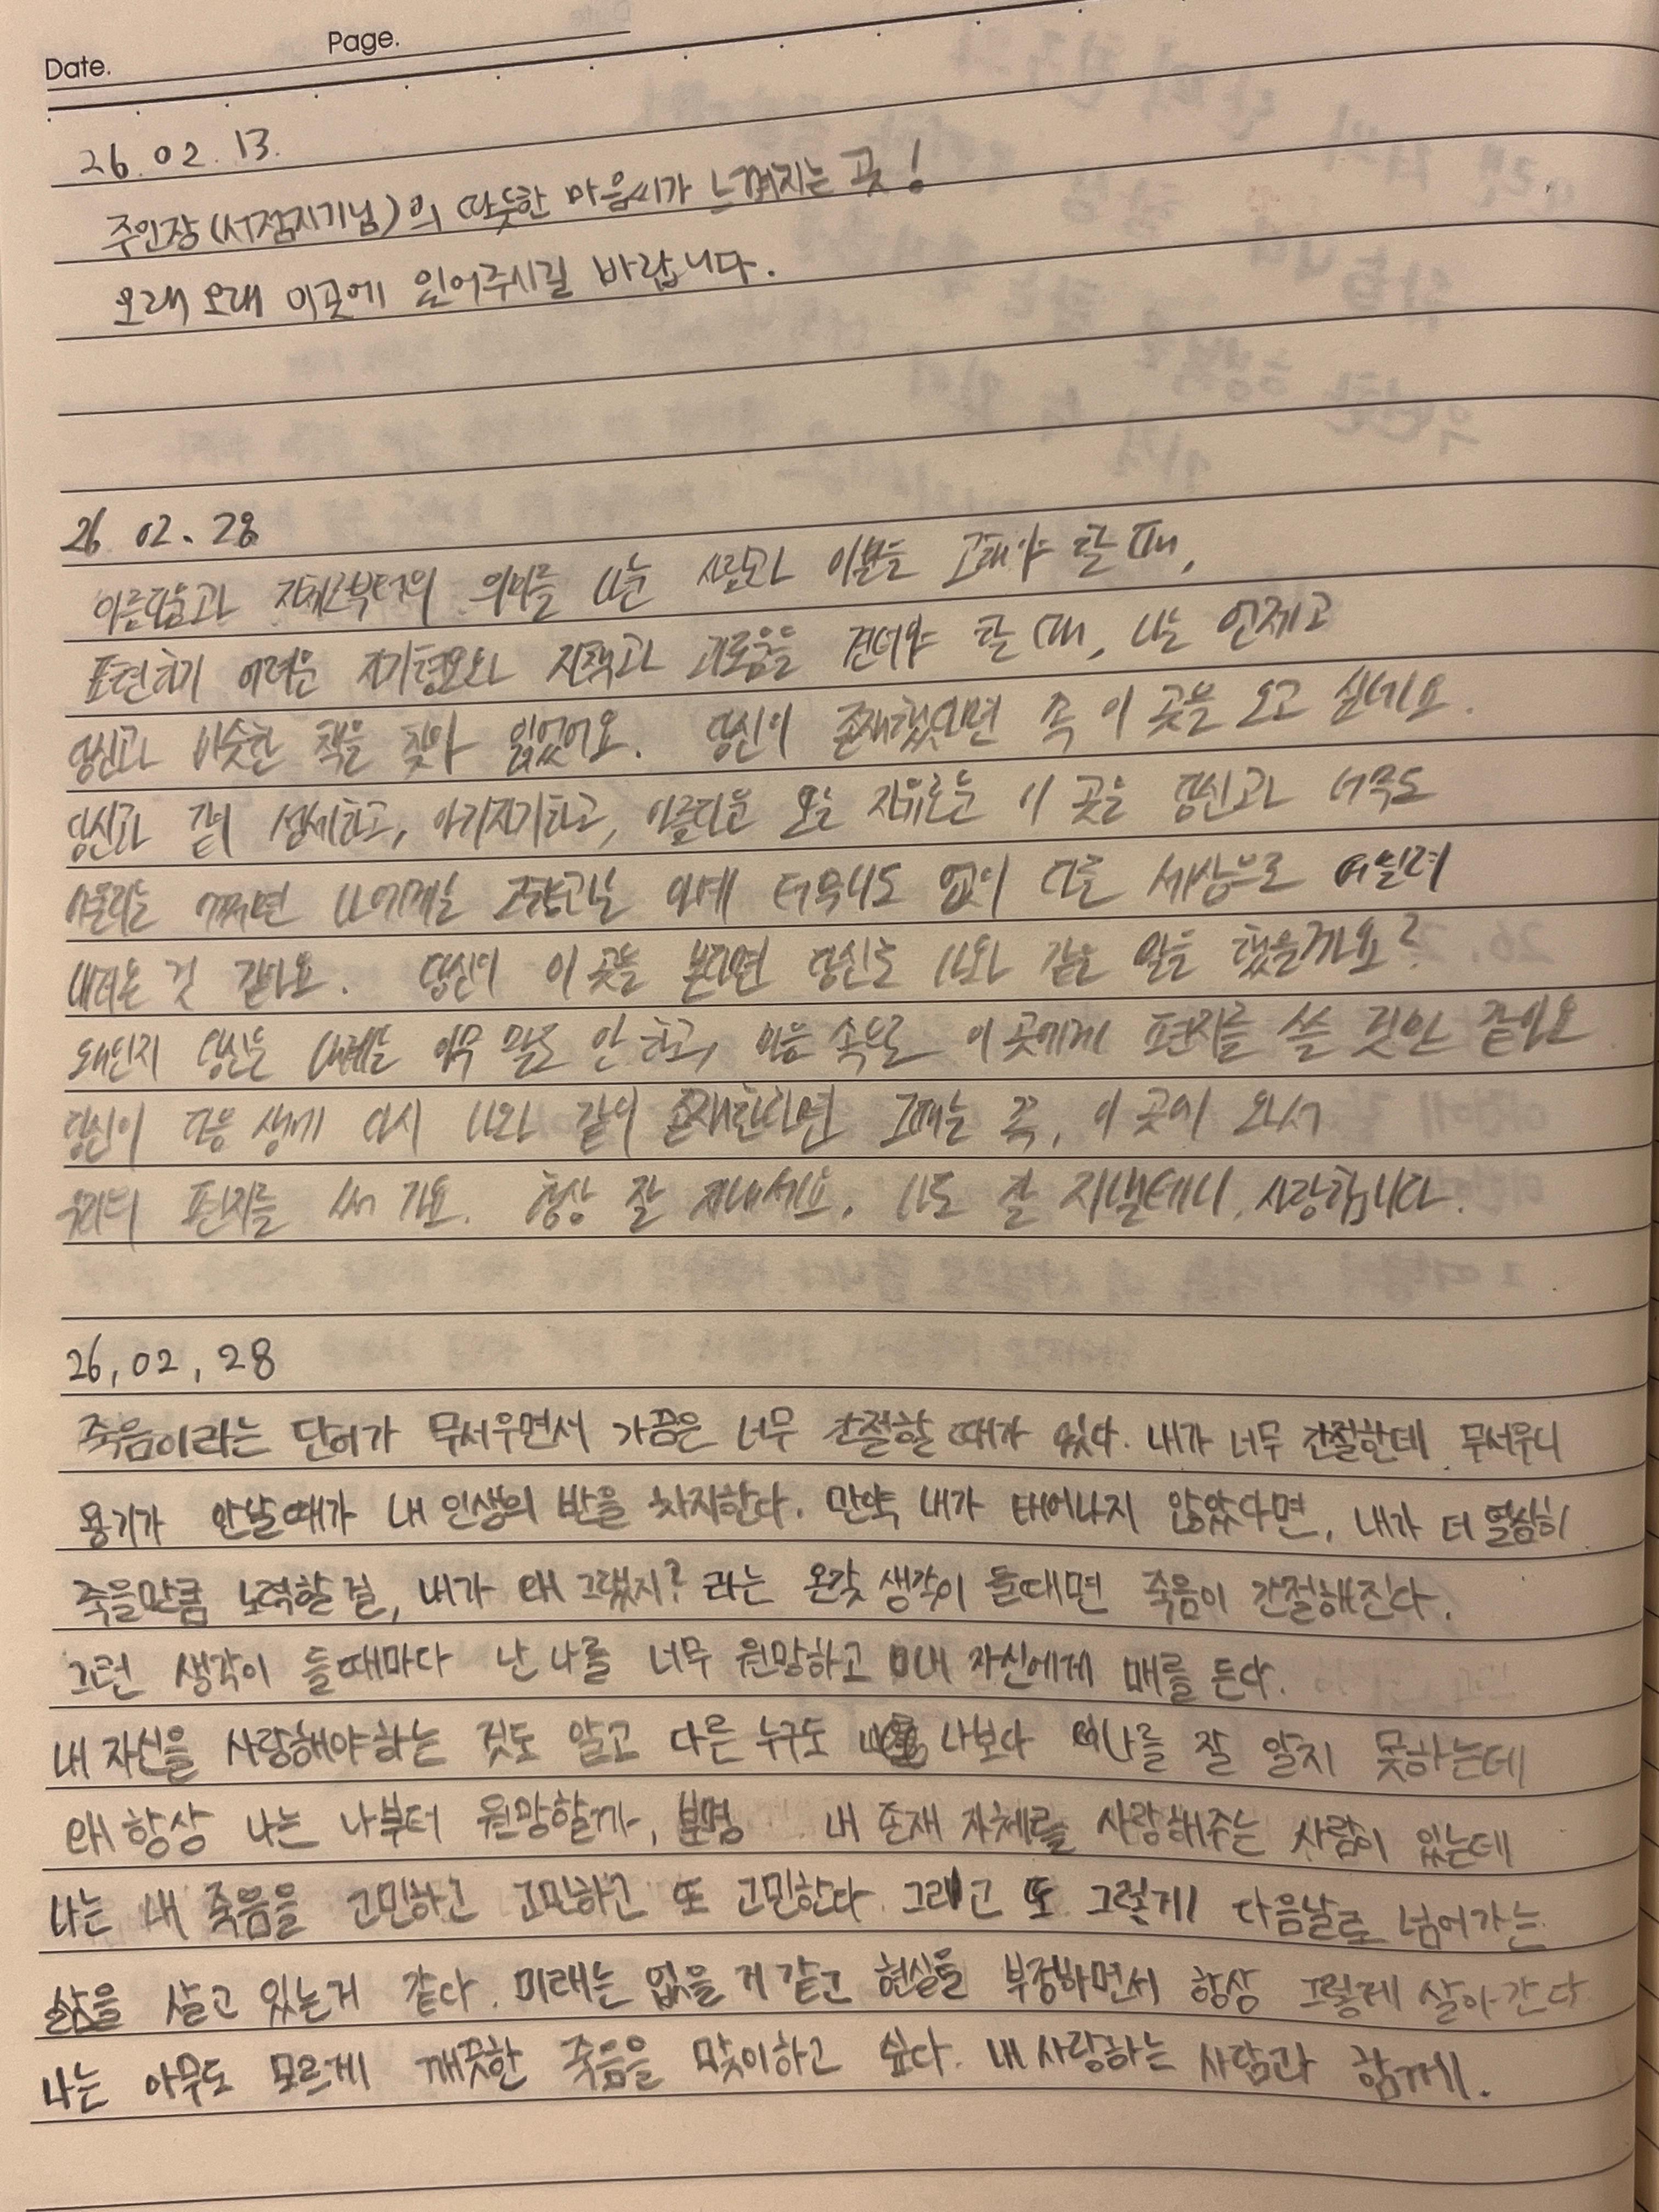 Date.
Page.
26. 02. 13.
주인장(서점지기님)의 따뜻한 마음씨가 느껴지는 곳!
오래오래 이곳에 있어주시길 바랍니다.
26 02. 28
아름다움과 의미를 나눈 사람과 이별을 고해야 할 때,
표현하기 어려운 자기혐오와 자책과 괴로움을 견뎌야 할 때, 나는 언제고
당신과 비슷한 책을 찾아 읽었어요. 당신이 존재했다면 꼭 이 곳을 오고 싶네요.
당신과 같이 섬세하고, 아기자기하고, 아름다운 오늘 자유로운 이 곳을 당신과 너무도
어울리는 어쩌면 나에게는 터무니도 없이 다른 세상으로 떠밀려
내려온 것 같아요. 당신이 이 곳을 본다면 당신도 나와 같은 말을 했을까요?
왜인지 당신은 나에게는 아무 말도 안 하고, 마음 속으로 이 곳에게 편지를 쓸 것만 같아요
당신이 다음 생에 다시 나와 같이 존재한다면 그때는 꼭, 이 곳에 와서
우리의 편지를 써 가요. 항상 잘 지내세요. 나도 잘 지낼테니, 사랑합니다.
26, 02, 28
죽음이라는 단어가 무서우면서 가끔은 너무 간절할 때가 있다. 내가 너무 간절한데 무서우니
용기가 안날때가 내 인생의 반을 차지한다. 만약 내가 태어나지 않았다면, 내가 더 열심히
죽을만큼 노력할 걸, 내가 왜 그랬지? 라는 온갖 생각이 들때면 죽음이 간절해진다.
그런 생각이 들때마다 난 나를 너무 원망하고 내 자신에게 매를 든다.
내 자신을 사랑해야하는 것도 알고 다른 누구도 나보다 나를 잘 알지 못하는데
왜 항상 나는 나부터 원망할까, 분명 내 존재 자체를 사랑해주는 사람이 있는데
나는 내 죽음을 고민하고 고민하고 또 고민한다. 그리고 또 그렇게 다음날로 넘어가는
삶을 살고 있는거 같다. 미래는 없을 거 같고 현실을 부정하면서 항상 그렇게 살아간다
나는 아무도 모르게 깨끗한 죽음을 맞이하고 싶다. 내 사랑하는 사람과 함께.